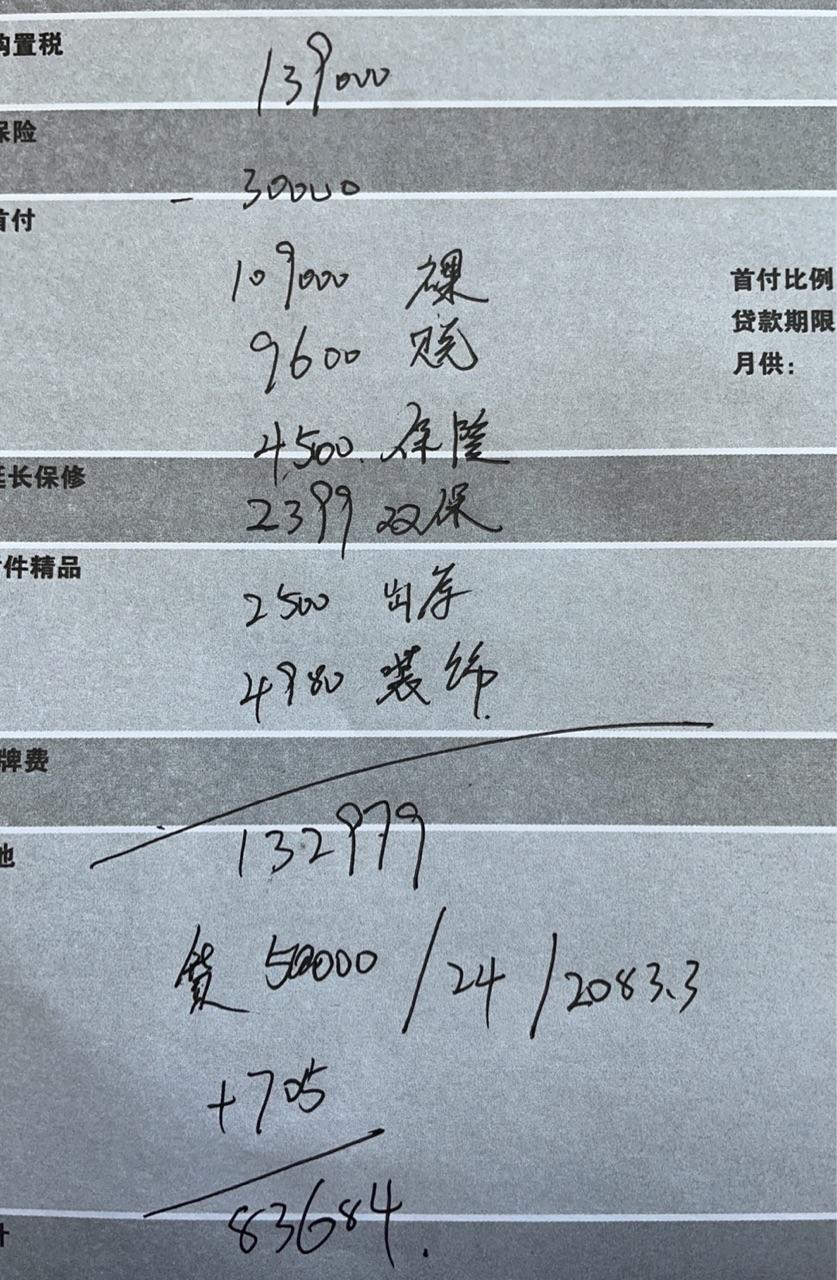 购置税
139000
保险
- 30000
首付
109000 裸
首付比例
9600 税
贷款期限
月供：
4500 保险
延长保修
2399 双保
件精品
2500 出库
4980 装饰
牌费
132979
他
贷 50000 / 24 / 2083.3
+705
83684.
计